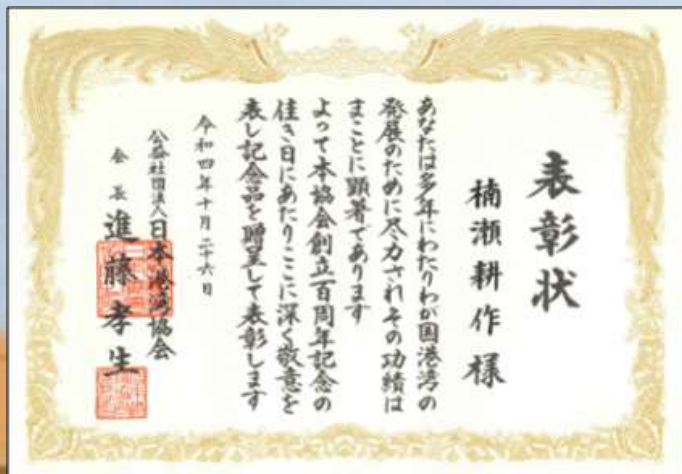 表彰状
楠瀬耕作様
あなたは多年にわたりわが国港湾の
発展のために尽力されその功績は
まことに顕著であります
よって本協会創立百周年記念の
佳き日にあたりここに深く敬意を
表し記念品を贈呈して表彰します
令和四年十月二十六日
公益社団法人日本港湾協会
会長進藤孝生